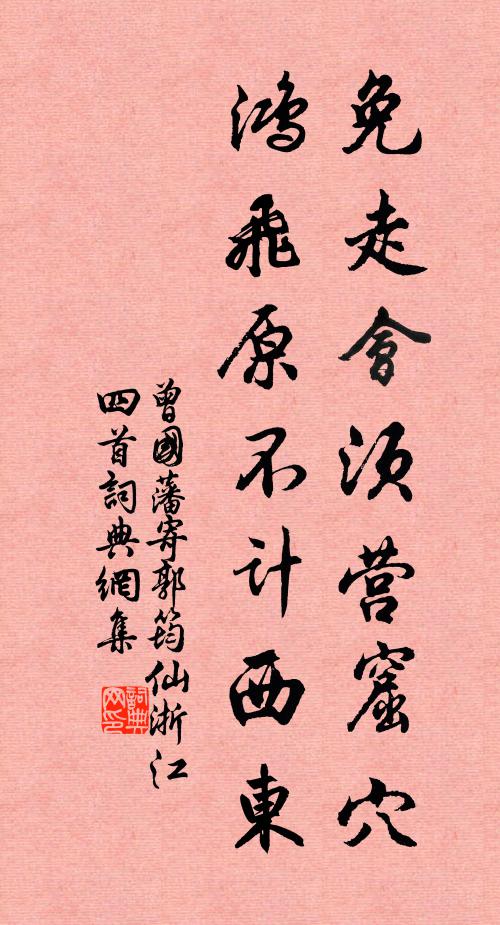 兔走會須营窟穴
鴻飛原不计西東
曾國藩寄郭筠仙浙江
四首詞典網集
詞典网印